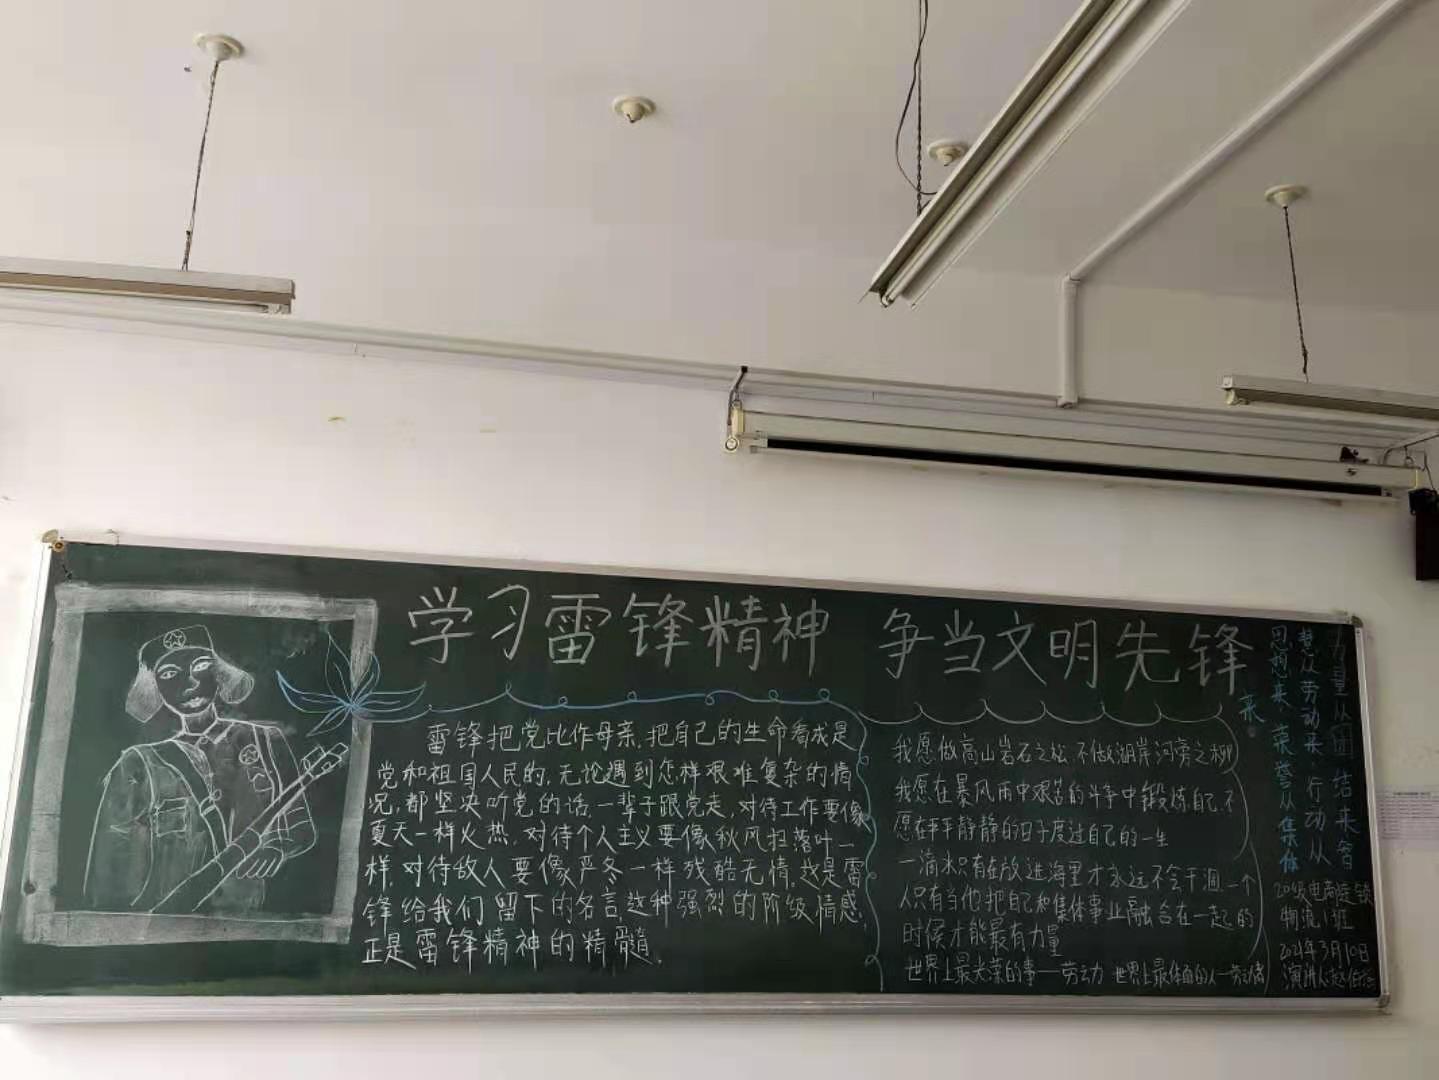 学习雷锋精神 争当文明先锋
雷锋把党比作母亲,把自己的生命看成是
党和祖国人民的,无论遇到怎样艰难复杂的情
况,都坚决听党的话,一辈子跟党走,对待工作要像
夏天一样火热,对待个人主义要像秋风扫落叶一
样,对待敌人要像严冬一样残酷无情,这是雷
锋给我们留下的名言,这种强烈的阶级情感,
正是雷锋精神的精髓.
我愿做高山岩石之松,不做湖岸河旁之柳
我愿在暴风雨中艰苦的斗争中锻炼自己,不
愿在平平静静的日子度过自己的一生
一滴水只有在放进海里才永远不会干涸,一个
人只有当他把自己和集体事业融合在一起的
时候才能最有力量
世界上最光荣的事一劳动 世界上最体面的人一劳动者
力量从团结来 智
慧从劳动来·行动从
思想来 荣誉从集体
来
物流1班
2021年3月10日